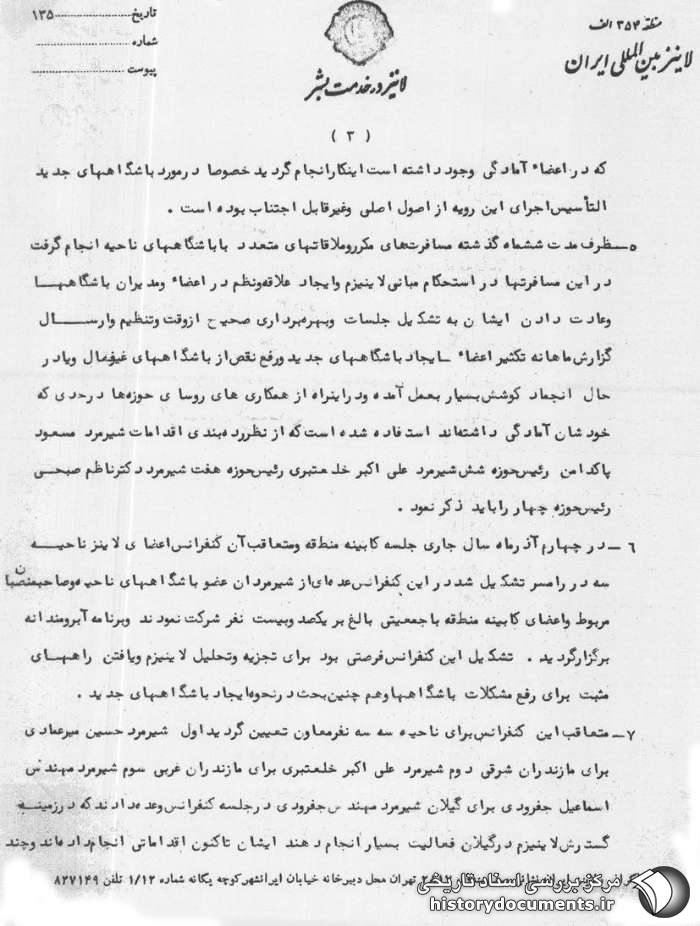 منطقه ۳۵۴ الف
لاینز بین المللی ایران
لاینز در خدمت بشر
تاریخ ۱۳۵
شماره
پیوست
( ۳ )
که در اعضاء آمادگی وجود داشته است اینکار انجام گردید خصوصا در مورد باشگاههای جدید
التأسیس اجرای این رویه از اصول اصلی و غیرقابل اجتناب بوده است .
۵ــ ظرف مدت ششماه گذشته مسافرت‌های مکرر و ملاقاتهای متعدد با باشگاههای ناحیه انجام گرفت
در این مسافرتها در استحکام مبانی لاینیزم و ایجاد علاقه و نظم در اعضاء و مدیران باشگاهها
و عادت دادن ایشان به تشکیل جلسات و بهره برداری صحیح از وقت و تنظیم و ارسال
گزارش ماهانه تکثیر اعضاء ــ ایجاد باشگاههای جدید و رفع نقص از باشگاههای غیرفعال و یا در
حال انجماد کوشش بسیار بعمل آمده و در اینراه از همکاری های روسای حوزه‌ها در حدی که
خودشان آمادگی داشته‌اند استفاده شده است که از نظر رده بندی اقدامات شیرمرد مسعود
پاکدامن رئیس حوزه شش شیرمرد علی اکبر خلعتبری رئیس حوزه هفت شیرمرد دکتر ناظم صبحی
رئیس حوزه چهار را باید ذکر نمود .
۶ ــ در چهارم آذرماه سال جاری جلسه کابینه منطقه و متعاقب آن کنفرانس اعضای لاینز ناحیه
سه در رامسر تشکیل شد در این کنفرانس عده‌ای از شیرمردان عضو باشگاههای ناحیه و صاحبمنصبان
مربوط و اعضای کابینه منطقه با جمعیتی بالغ بر یکصد و بیست نفر شرکت نمودند و برنامه آبرومندانه
برگزار گردید . تشکیل این کنفرانس فرصتی بود برای تجزیه و تحلیل لاینیزم و یافتن راههای
مثبت برای رفع مشکلات باشگاهها و هم چنین بحث در نحوه ایجاد باشگاههای جدید .
۷ــ متعاقب این کنفرانس برای ناحیه سه سه نفر معاون تعیین گردید اول شیرمرد حسین میرعمادی
برای مازندران شرقی دوم شیرمرد علی اکبر خلعتبری برای مازندران غربی سوم شیرمرد مهندس
اسماعیل جفرودی برای گیلان شیرمرد مهندس جفرودی در جلسه کنفرانس وعده دادند که در زمینه
گسترش لاینیزم در گیلان فعالیت بسیار انجام دهند ایشان تاکنون اقداماتی انجام داده‌اند و چند
تهران محل دبیرخانه خیابان ایرانشهر کوچه یگانه شماره ۱/۱۲ تلفن ۸۲۷۱۴۹
مرکز بررسی اسناد تاریخی
historydocuments.ir